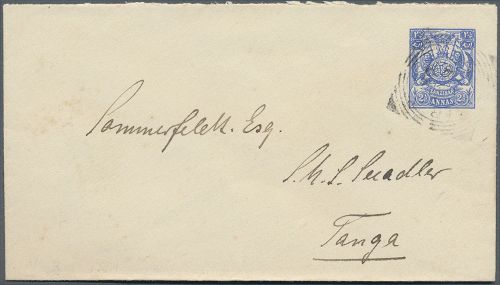 ZANZIBAR
2½ ANNAS 2½
Sommerfeldt. Esq.
S.M.S. Seeadler
Tanga